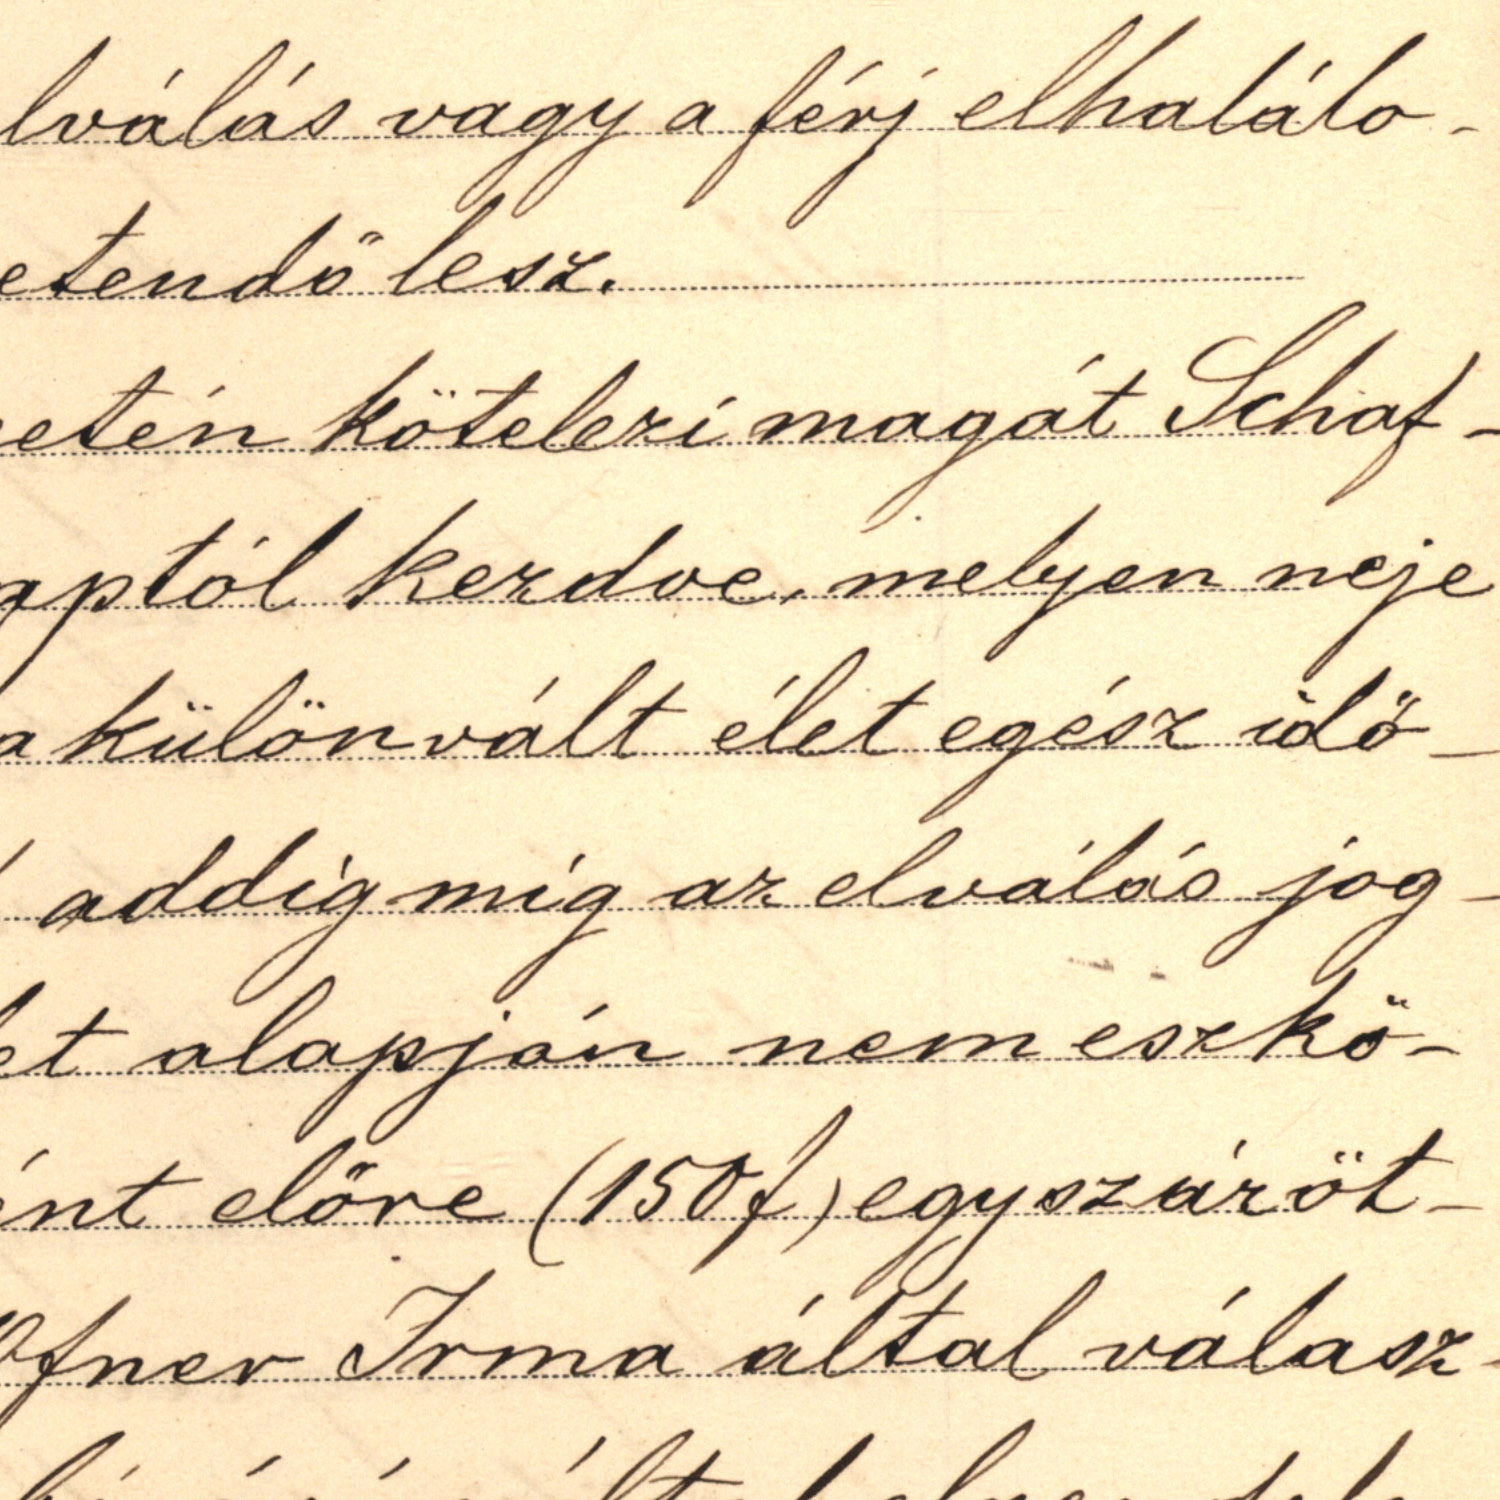 lválás vagy a férj elhalálo-
etendő lesz.
etén kötelezi magát Schaf-
aptól kezdve, melyen neje
a különvált élet egész idő-
addig mig az elválás jog-
et alapján nem eszkö-
ént előre (150 f) egyszázöt-
Ofner Irma által válasz-